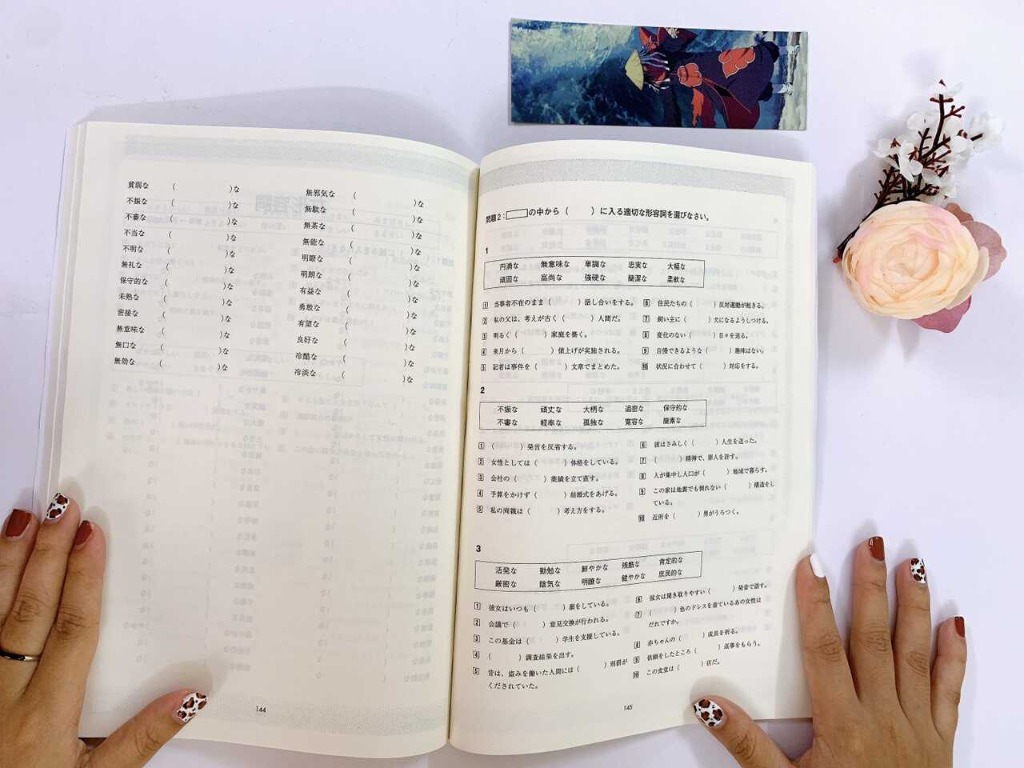 貧弱な （　　　）な
不振な （　　　）な
不審な （　　　）な
不当な （　　　）な
不明な （　　　）な
無礼な （　　　）な
保守的な （　　　）な
未熟な （　　　）な
密接な （　　　）な
無意味な （　　　）な
無口な （　　　）な
無効な （　　　）な
無邪気な （　　　）な
無駄な （　　　）な
無茶な （　　　）な
無能な （　　　）な
明瞭な （　　　）な
明朗な （　　　）な
有益な （　　　）な
勇敢な （　　　）な
有望な （　　　）な
良好な （　　　）な
冷酷な （　　　）な
冷淡な （　　　）な
144
問題2：□の中から（　　）に入る適切な形容詞を選びなさい。
1
円満な 無意味な 単調な 忠実な 大幅な
頑固な 高尚な 強硬な 簡潔な 柔軟な
1 当事者不在のまま（　　）話し合いをする。
2 私の父は、考えが古く（　　）人間だ。
3 明るく（　　）家庭を築く。
4 来月から（　　）値上げが実施される。
5 記者は事件を（　　）文章でまとめた。
6 住民たちの（　　）反対運動が起きる。
7 飼い主に（　　）犬になるようしつける。
8 変化のない（　　）日々を送る。
9 自慢できるような（　　）趣味はない。
10 状況に合わせて（　　）対応をする。
2
不振な 頑丈な 大柄な 過密な 保守的な
不審な 軽率な 孤独な 寛容な 簡素な
1 （　　）発言を反省する。
2 女性としては（　　）体格をしている。
3 会社の（　　）業績を立て直す。
4 予算をかけず（　　）結婚式をあげる。
5 私の両親は（　　）考え方をする。
6 彼はさみしく（　　）人生を送った。
7 （　　）精神で、罪人を許す。
8 人が集中し人口が（　　）地域で暮らす。
9 この家は地震でも倒れない（　　）構造をし
ている。
10 近所を（　　）男がうろつく。
3
活発な 勤勉な 鮮やかな 残酷な 肯定的な
厳密な 陰気な 明瞭な 健やかな 庶民的な
1 彼女はいつも（　　）顔をしている。
2 会議で（　　）意見交換が行われる。
3 この基金は（　　）学生を支援している。
4 （　　）調査結果を出す。
5 昔は、盗みを働いた人間には（　　）刑罰が
くだされていた。
6 彼女は聞き取りやすい（　　）発音で話す。
7 （　　）色のドレスを着ているあの女性は
だれですか。
8 赤ちゃんの（　　）成長を祈る。
9 依頼をしたところ（　　）返事をもらう。
10 この食堂は（　　）店だ。
145